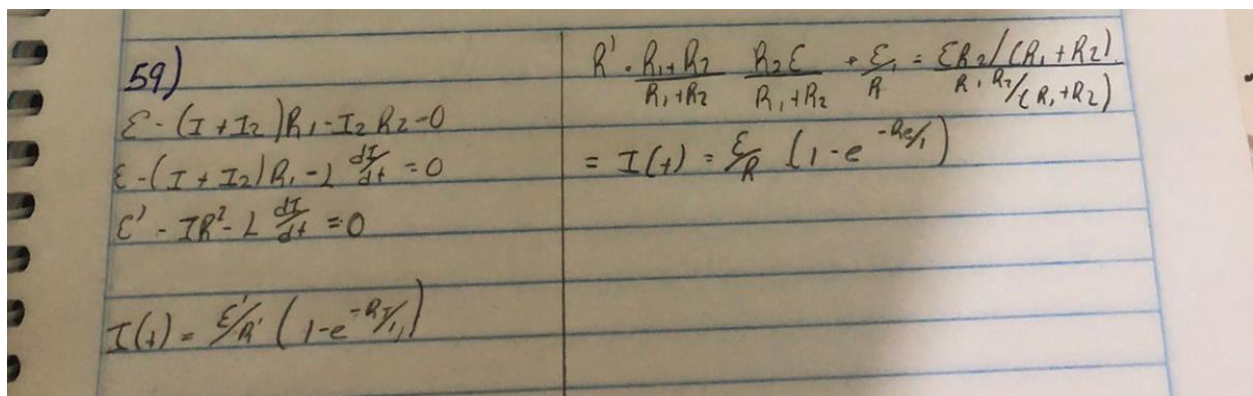 59)
ε - (I + I2)R1 - I2 R2 - 0
ε - (I + I2)R1 - L dI/dt = 0
ε' - IR² - L dI/dt = 0
I(t) = ε'/R' (1-e^
R' · R1+R2/R1+R2 R2ε/R1+R2 + ε1/R = εR2/(R1+R2)/R1R2/(R1+R2)
= I(t) = ε/R (1-e^